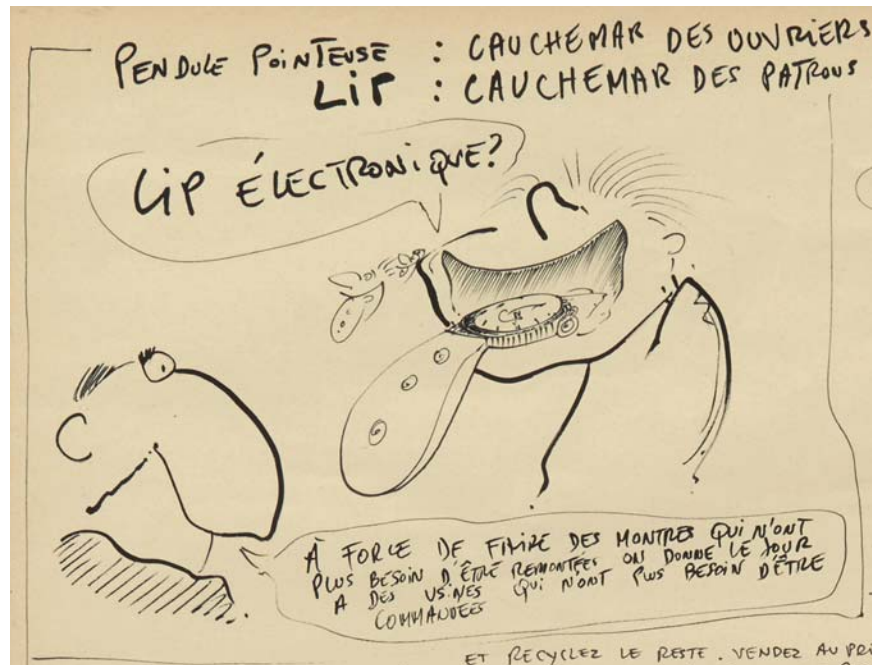 PENDULE POINTEUSE : CAUCHEMAR DES OUVRIERS
LIP : CAUCHEMAR DES PATRONS
LIP ÉLECTRONIQUE?
À FORCE DE FAIRE DES MONTRES QUI N'ONT
PLUS BESOIN D'ÊTRE REMONTÉES ON DONNE LE JOUR
A DES USINES QUI N'ONT PLUS BESOIN D'ÊTRE
COMMANDEES
ET RECYCLEZ LE RESTE. VENDEZ AU PRI